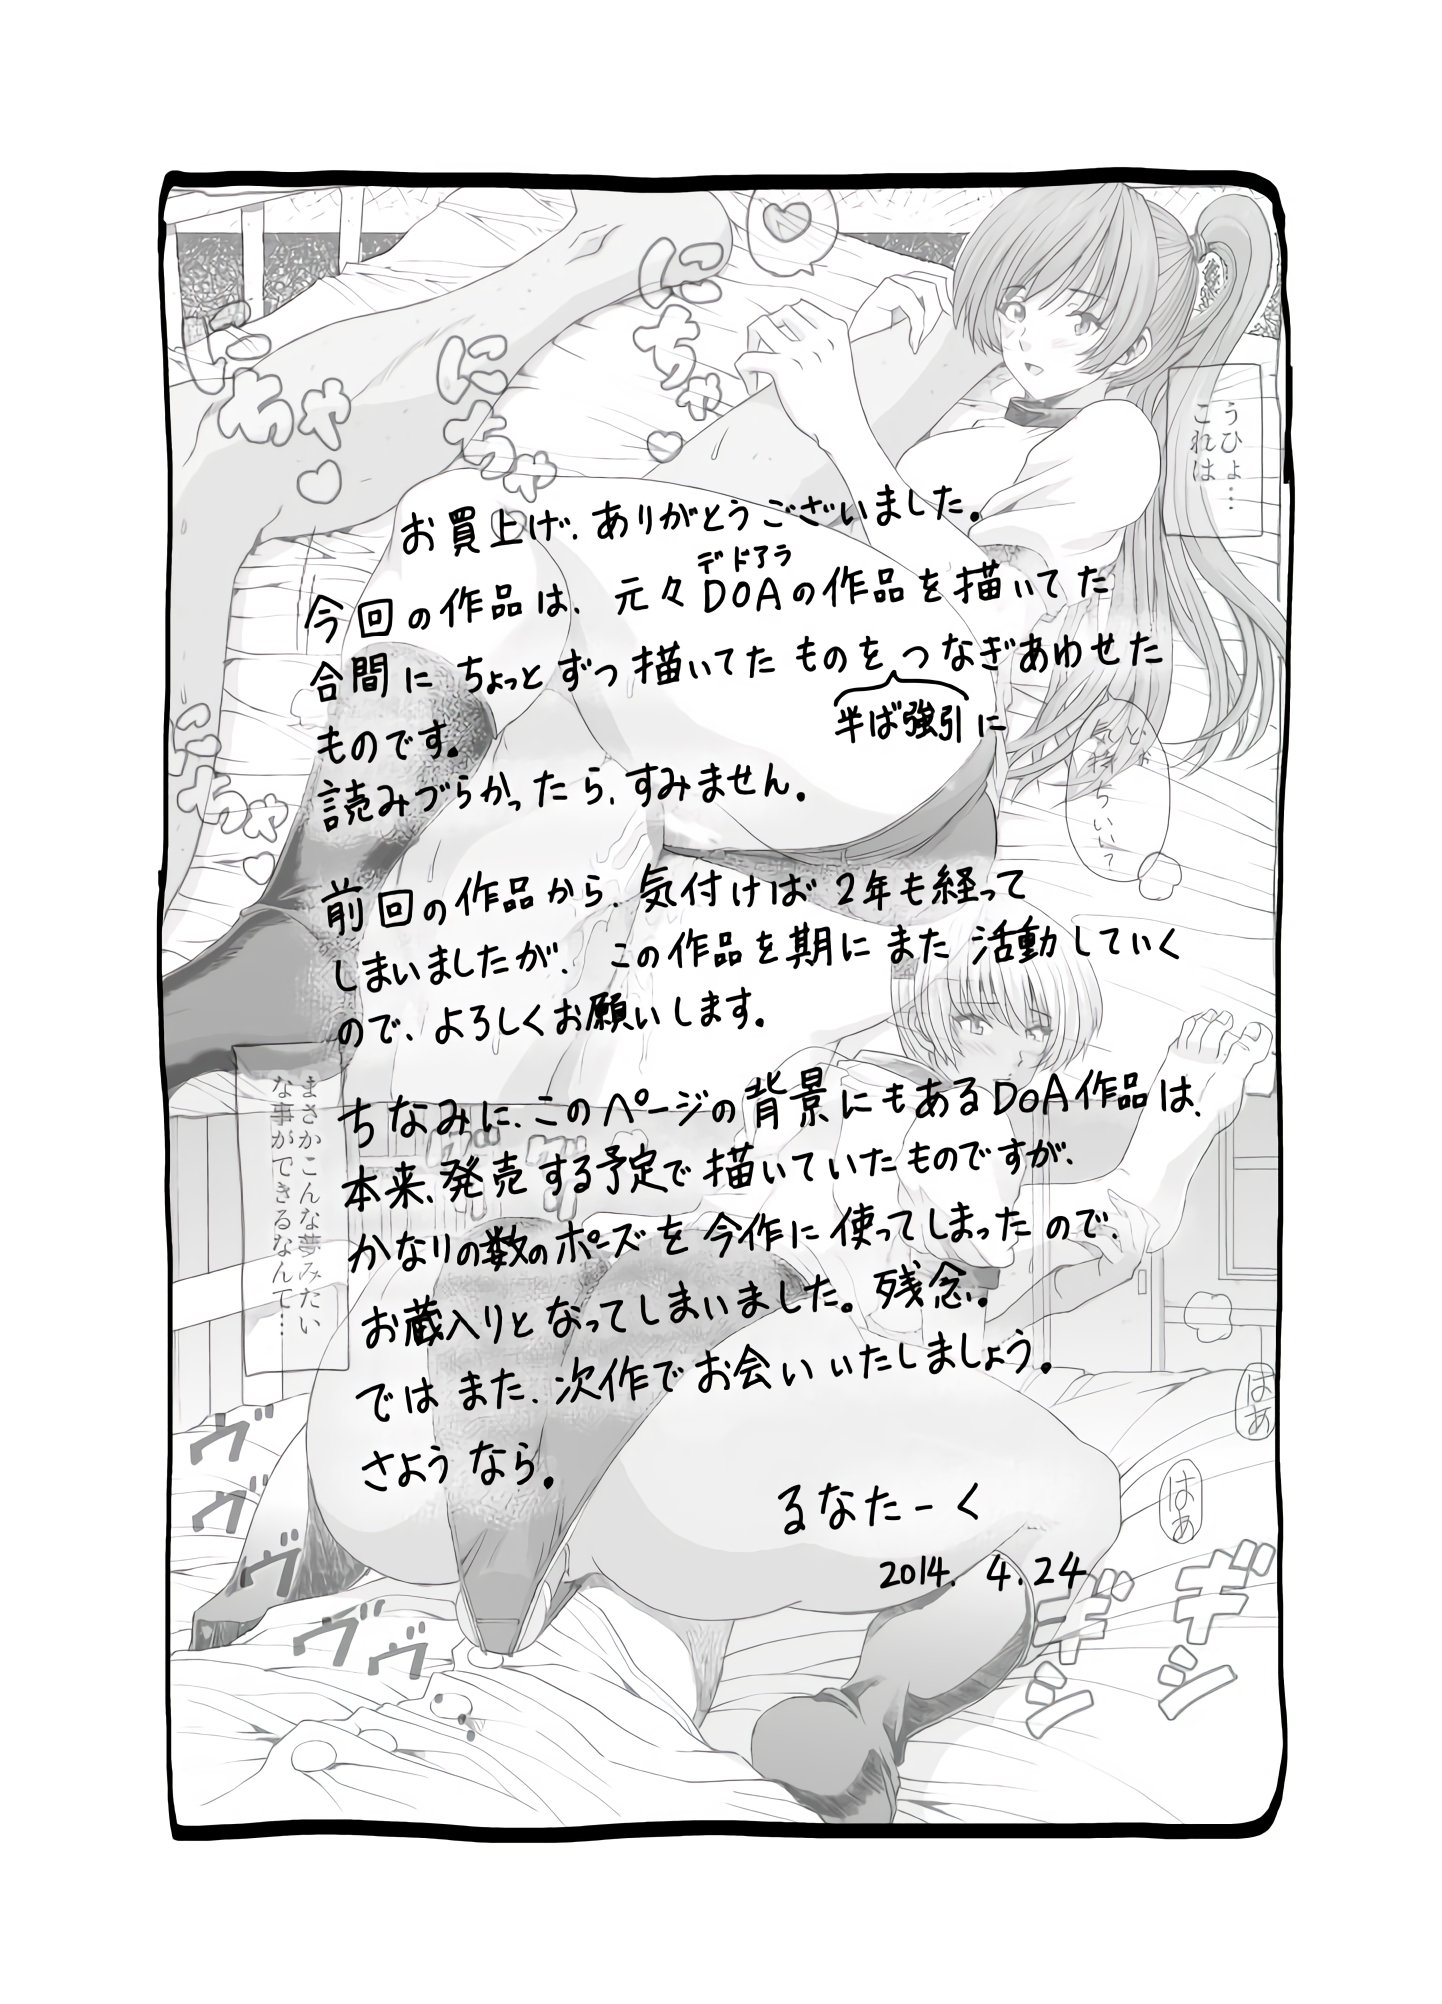 お買上げ、ありがとうございました。
今回の作品は、元々DOAの作品を描いてた
デドアラ
合間にちょっとずつ描いてたものをつなぎあわせた
半ば強引に
ものです。
読みづらかったら、すみません。
前回の作品から、気付けば2年も経って
しまいましたが、この作品を期にまた活動していく
ので、よろしくお願いします。
ちなみに、このページの背景にもあるDOA作品は、
本来、発売する予定で描いていたものですが、
かなりの数のポーズを今作に使ってしまったので、
お蔵入りとなってしまいました。残念。
ではまた、次作でお会いいたしましょう。
さようなら。
るなたーく
2014. 4. 24
うひょ…
これは
にちゃ♡
にちゃ
にちゃ♡
にちゃ♡
まさかこんな夢みたい
な事ができるなんて…
はあ
はあ
ヴヴ
ヴヴヴ
ギシ
ギシ